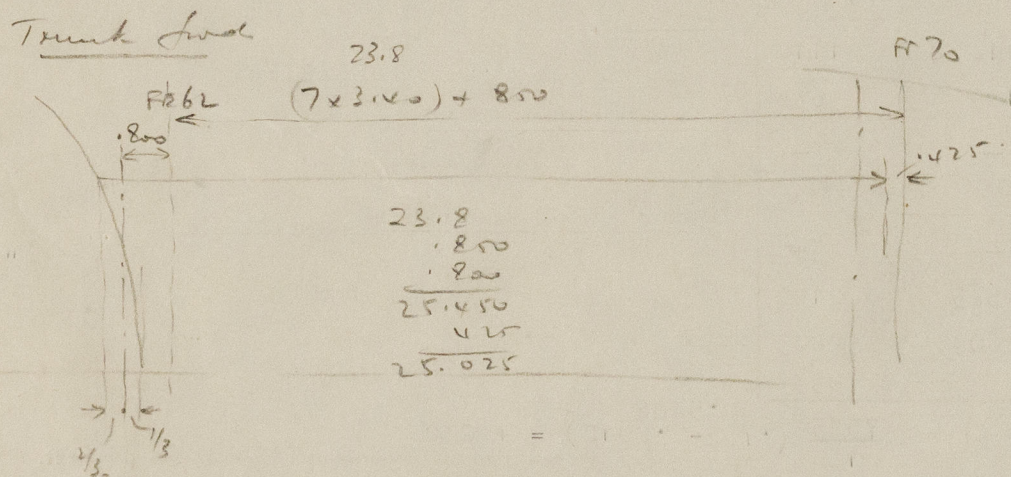 Trunk fwd
23.8
Fr 70
FR 62 (7 x 3.40) + 850
.800
.425
23.8
.850
.800
25.450
425
25.025
2/3 1/3
=